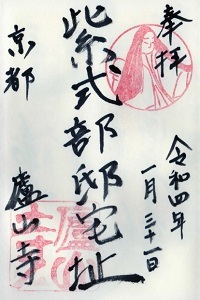 奉拝
令和四年
一月三十一日
紫式部邸宅址
京都
廬山寺